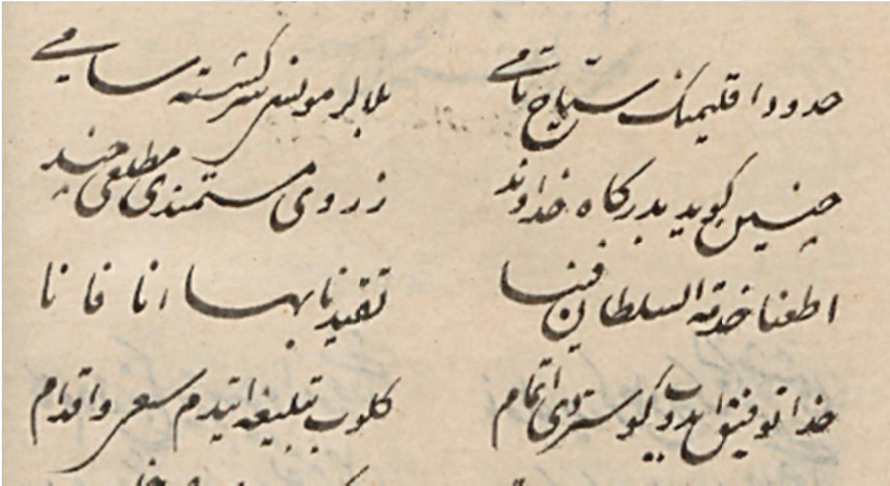 حدود اقلیمنك سیاح نامی بلالر مونسی سرکشته سامی
چنین کوید بدرکاه خداوند ز روی مستمندی مطلعی چند
اطعنا خدمة السلطان فینا تقیدنا بها انا فانا
خدا توفیق ایدوب کوستردی اتمام کلوب تبلیغه ایتدم سعی و اقدام